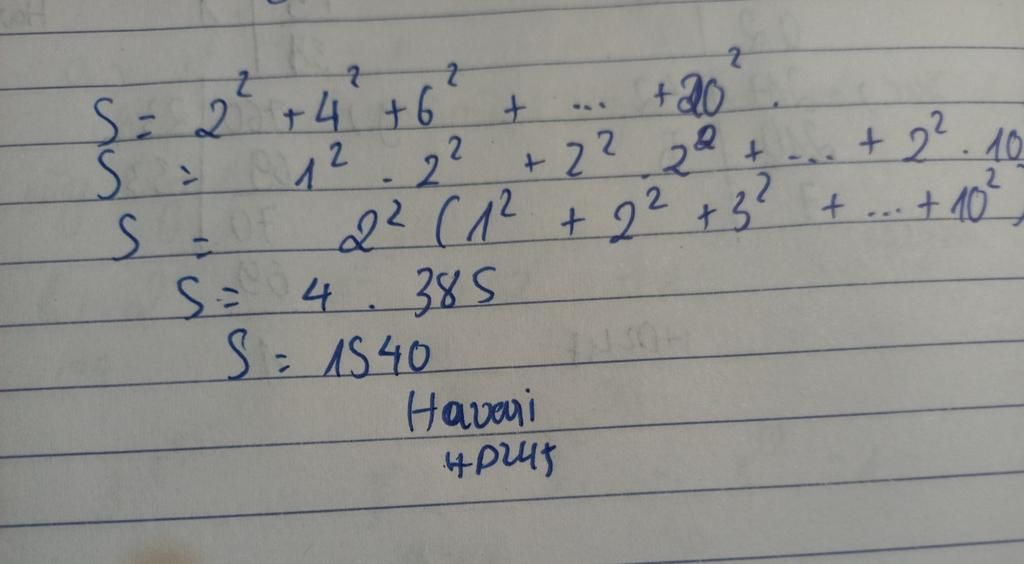 S = 2² + 4² + 6² + ... + 20².
S = 1² . 2² + 2² . 2² + ... + 2² . 10
S = 2² (1² + 2² + 3² + ... + 10²)
S = 4 . 385
S = 1540